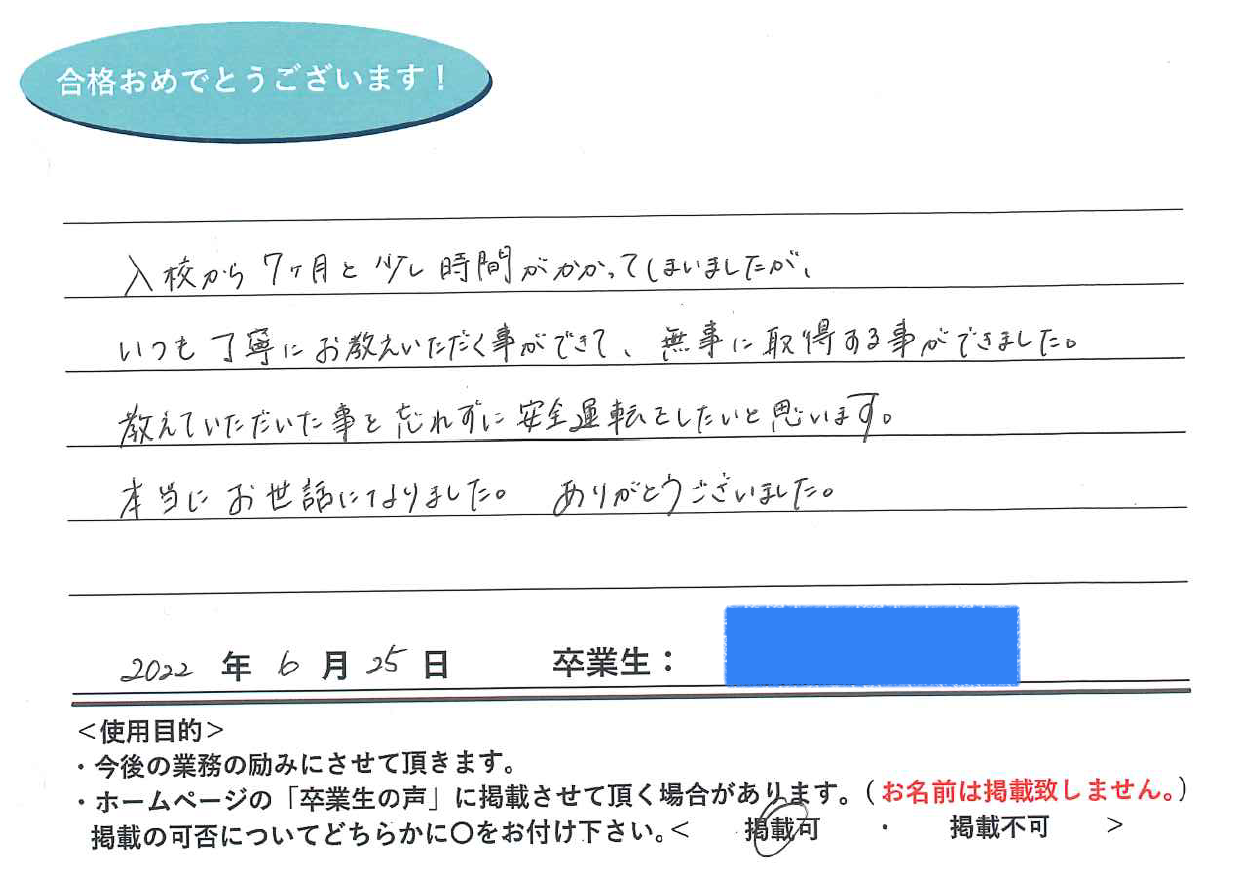 合格おめでとうございます！
入校から7ヶ月と少し時間がかかってしまいましたが、
いつも丁寧にお教えいただく事ができて、無事に取得する事ができました。
教えていただいた事を忘れずに安全運転をしたいと思います。
本当にお世話になりました。 ありがとうございました。
2022 年 6 月 25 日 卒業生：
＜使用目的＞
・今後の業務の励みにさせて頂きます。
・ホームページの「卒業生の声」に掲載させて頂く場合があります。（お名前は掲載致しません。）
掲載の可否についてどちらかに〇をお付け下さい。＜ 掲載可 ・ 掲載不可 ＞